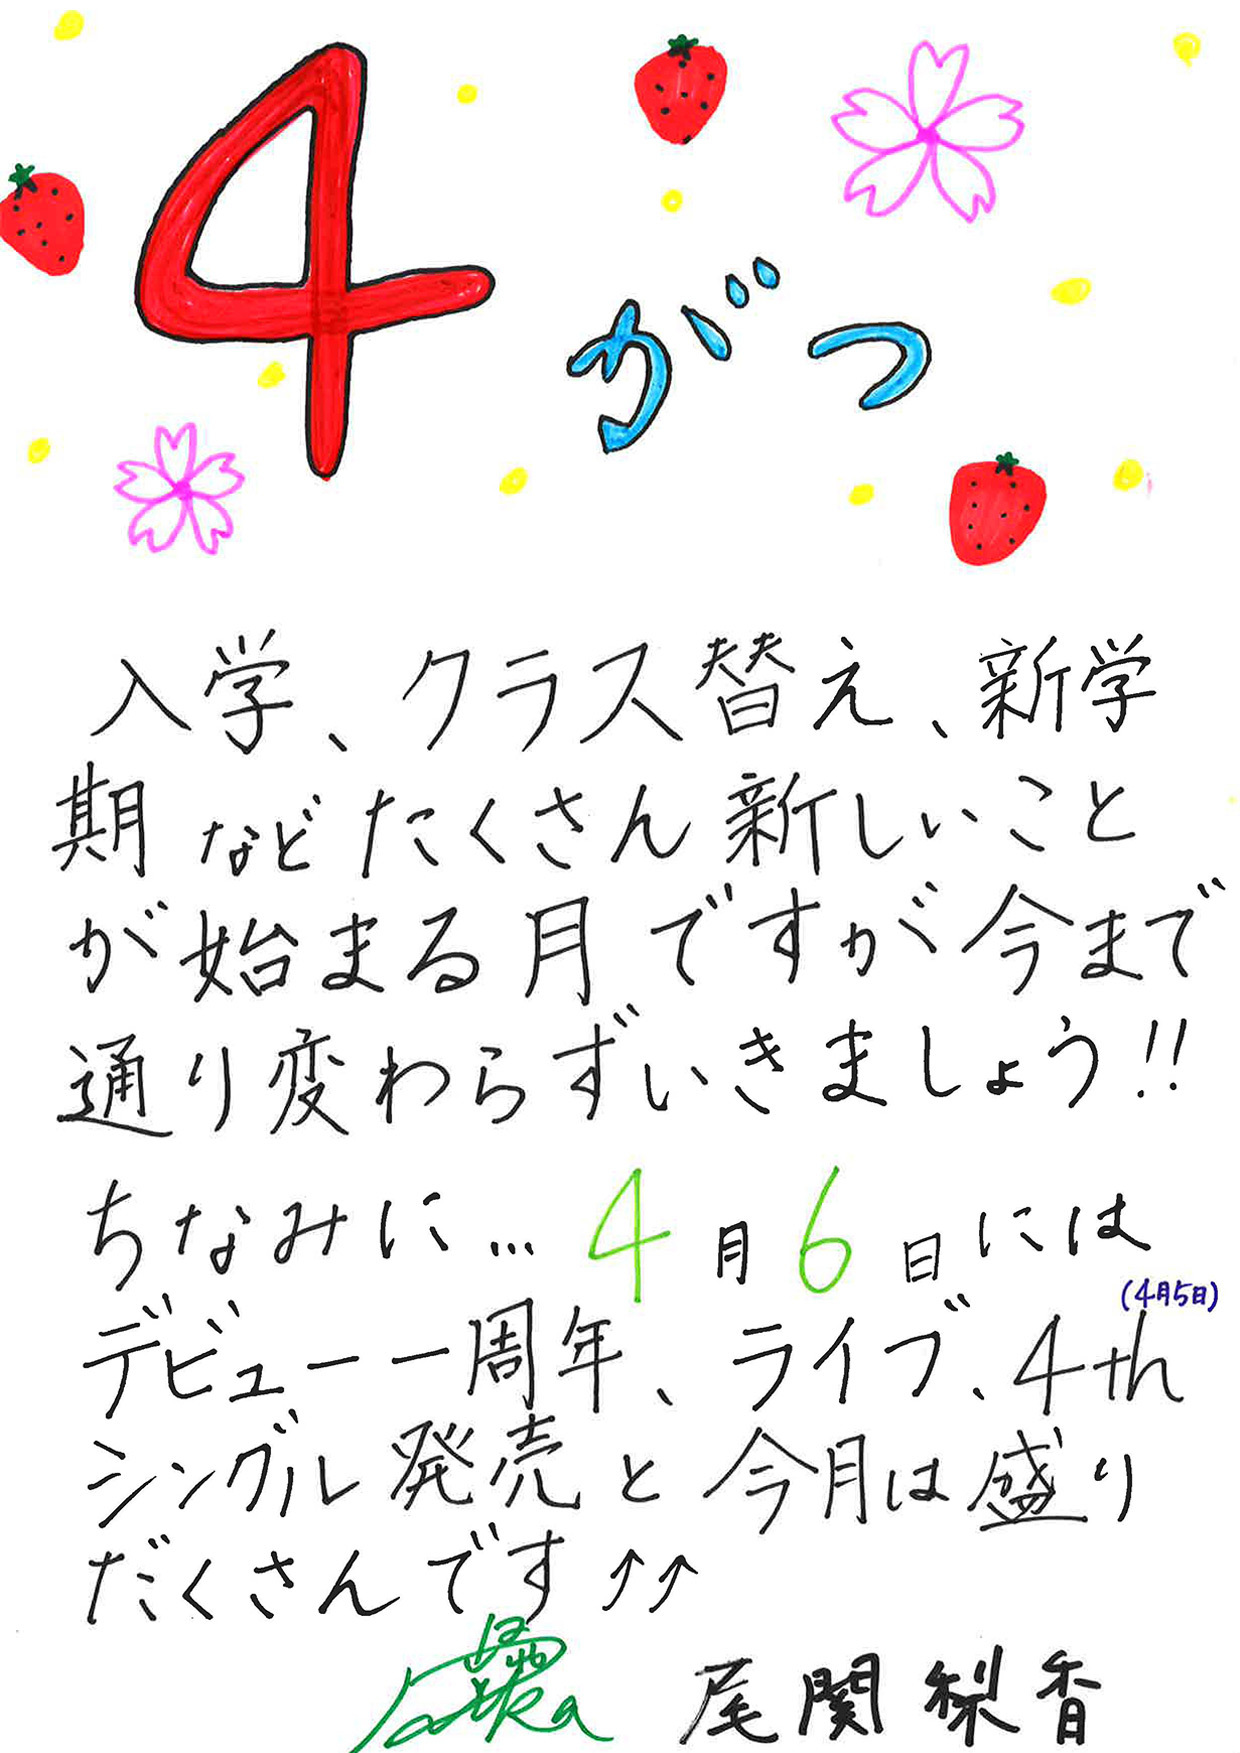 4がつ
入学、クラス替え、新学
期などたくさん新しいこと
が始まる月ですが今まで
通り変わらずいきましょう!!
ちなみに…4月6日には
(4月5日)
デビュー一周年、ライブ、4th
シングル発売と今月は盛り
だくさんです↑↑
尾関梨香